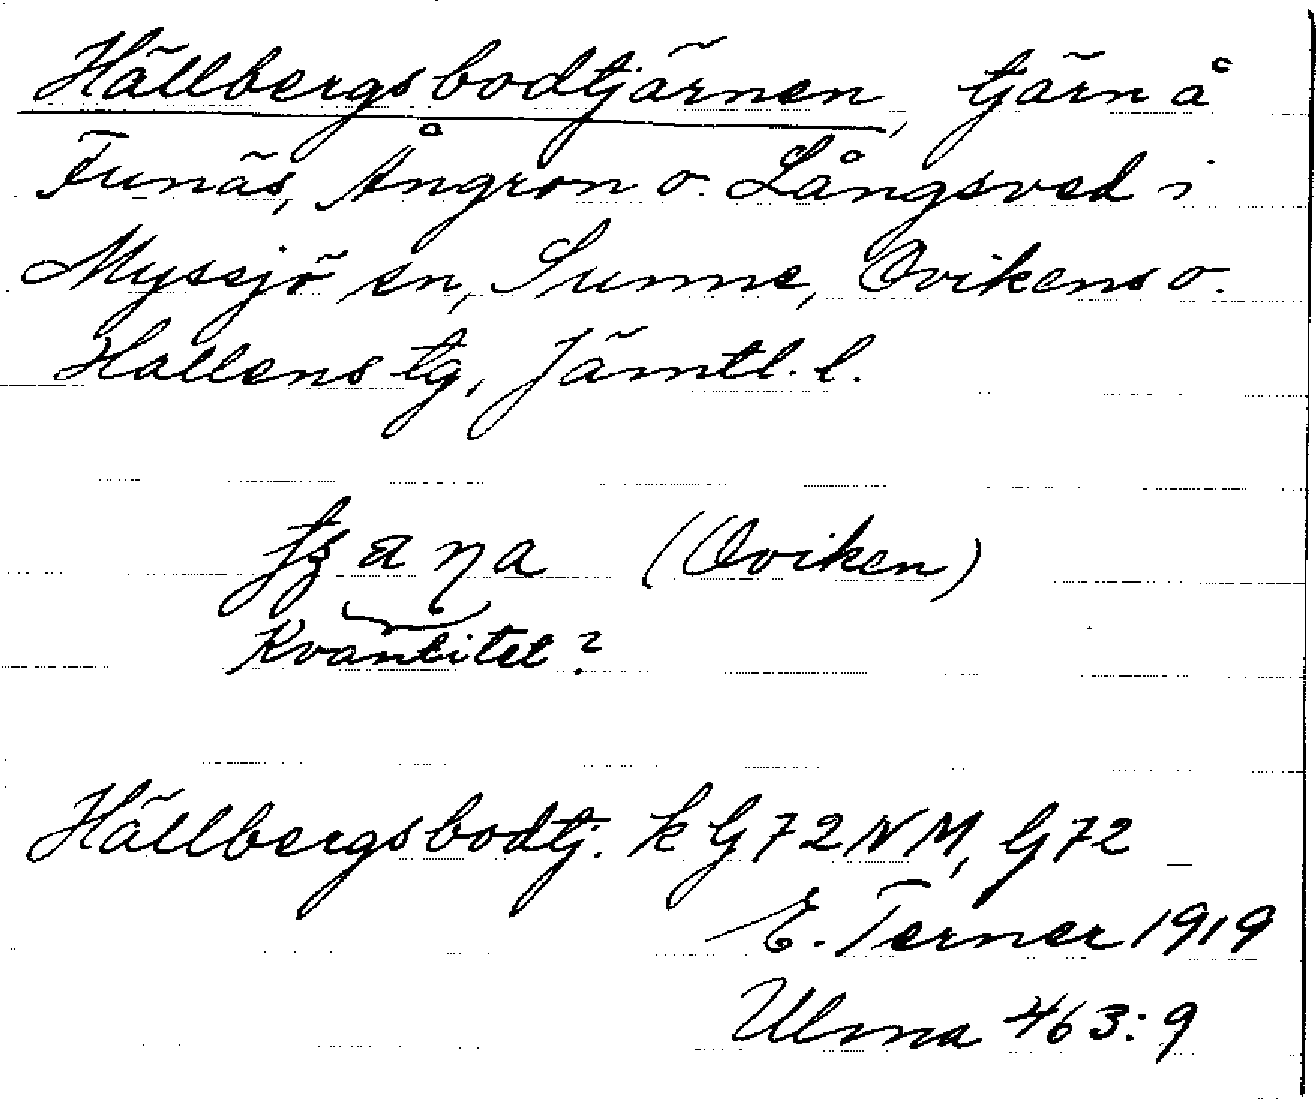 Hällbergsbodtjärnen, tjärn å
Funäs, Ångron o. Långsved i
Myssjö sn, Sunne, Ovikens o.
Hallens tg, Jämtl. l.
(Oviken)
Kvantitet?
Hällbergsbodtj. k G72NM, G72
E. Terner 1919
Ulma 463:9